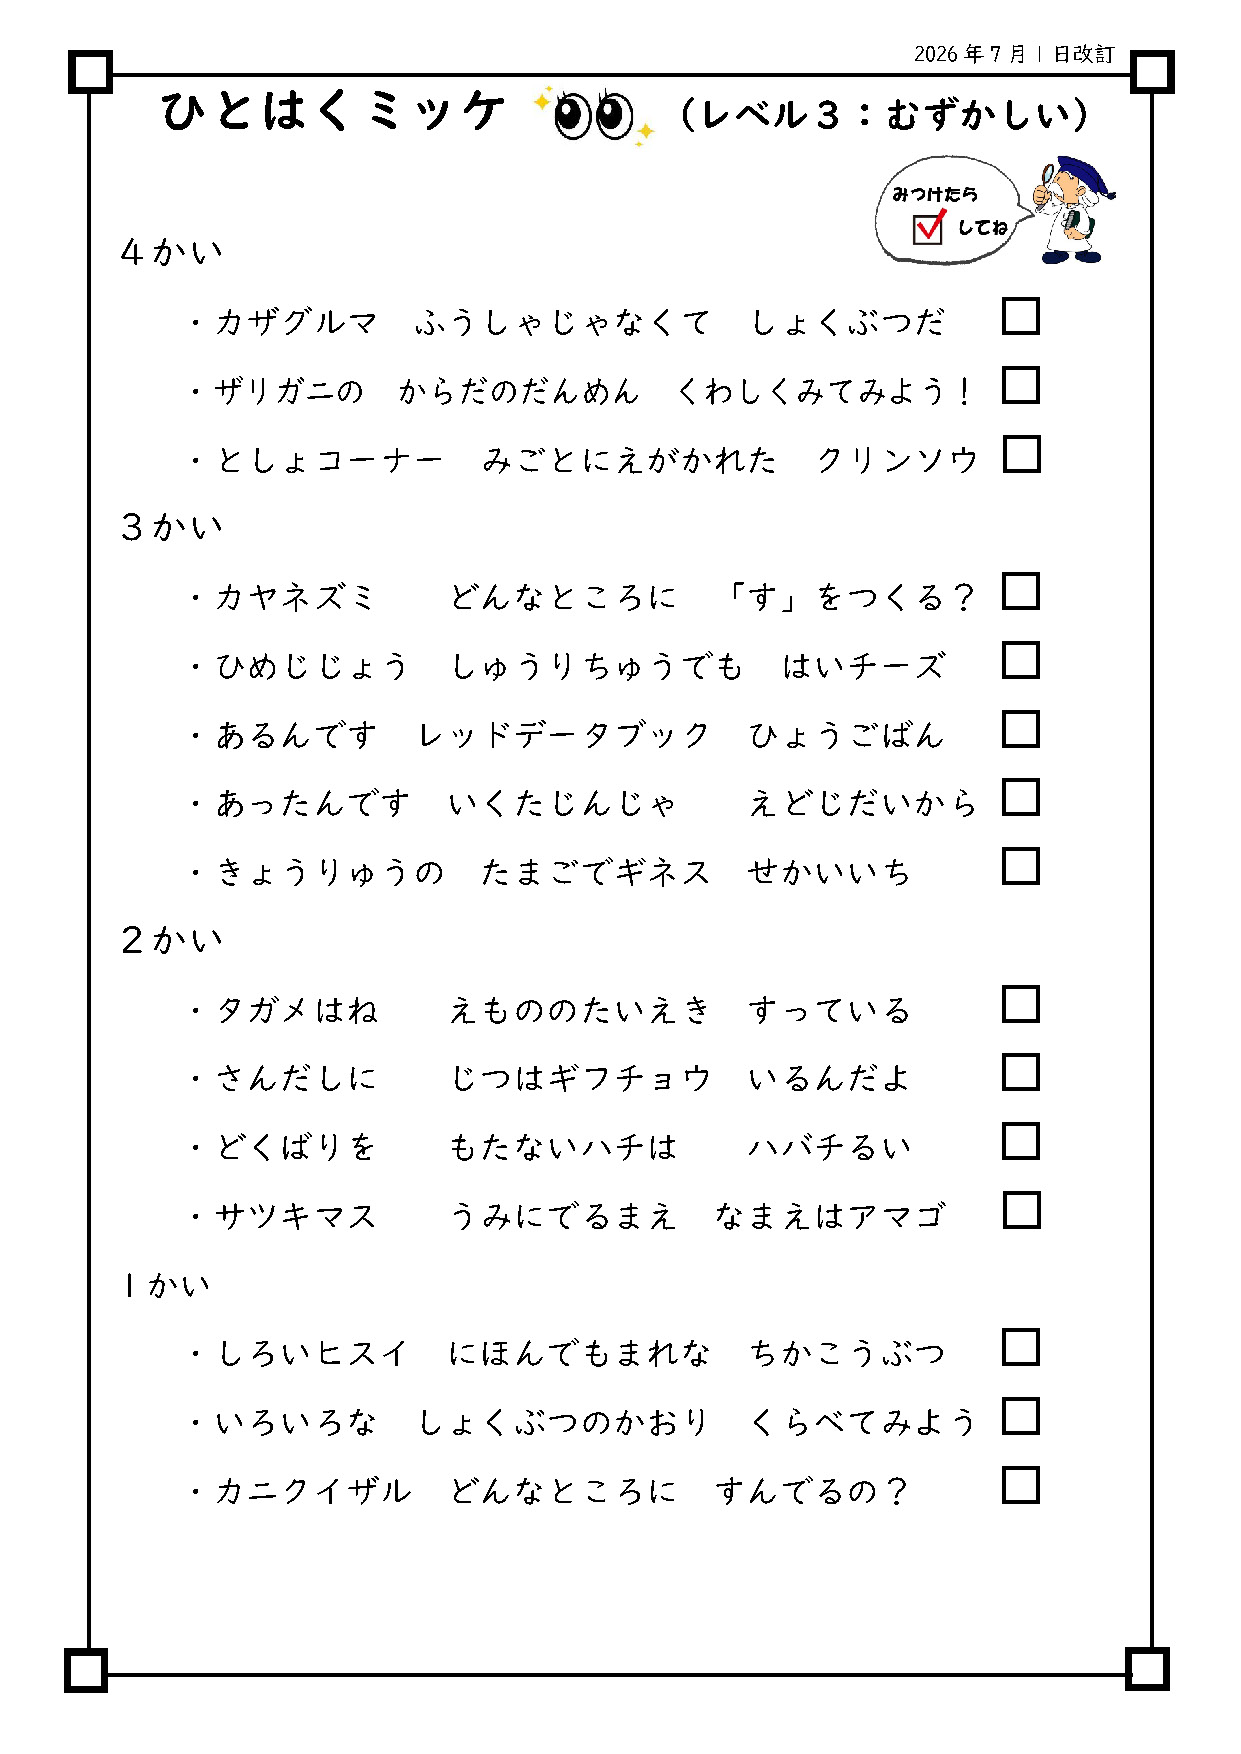 2026年7月1日改訂
ひとはくミッケ （レベル３：むずかしい）
みつけたら
してね
４かい
・カザグルマ　ふうしゃじゃなくて　しょくぶつだ
・ザリガニの　からだのだんめん　くわしくみてみよう！
・としょコーナー　みごとにえがかれた　クリンソウ
３かい
・カヤネズミ　　どんなところに　「す」をつくる？
・ひめじじょう　しゅうりちゅうでも　はいチーズ
・あるんです　レッドデータブック　ひょうごばん
・あったんです　いくたじんじゃ　　えどじだいから
・きょうりゅうの　たまごでギネス　せかいいち
２かい
・タガメはね　　えもののたいえき　すっている
・さんだしに　　じつはギフチョウ　いるんだよ
・どくばりを　　もたないハチは　　ハバチるい
・サツキマス　　うみにでるまえ　なまえはアマゴ
１かい
・しろいヒスイ　にほんでもまれな　ちかこうぶつ
・いろいろな　しょくぶつのかおり　くらべてみよう
・カニクイザル　どんなところに　すんでるの？